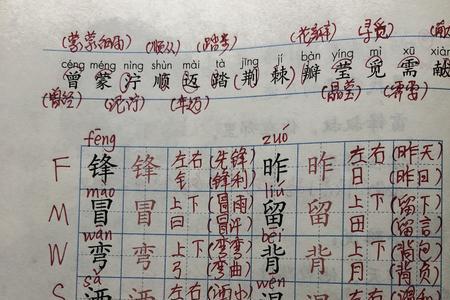 (蒙蒙细雨) (顺从) (踏青) (花瓣) (寻觅)
céng méng nìng shùn mài tà jīng jí bàn yíng mì xū xiàn
曾 蒙 泞 顺 迈 踏 荆 棘 瓣 莹 觅 需 献
(曾经) (泥泞) (年迈) (晶莹) (需要)
fēng zuó
F 锋 锋 左右 (先锋) 昨 昨 左右 (昨天)
钅 (锋利) 日 (昨日)
mào liú
M 冒 冒 上下 (冒雨) 留 留 上下 (留下)
曰 (冒许) 田 (留言)
wān bēi
W 弯 弯 上下 (弯弯) 背 背 上下 (背包)
弓 (弯曲) 月 (背负)
sǎ wēn
洒 洒 左右